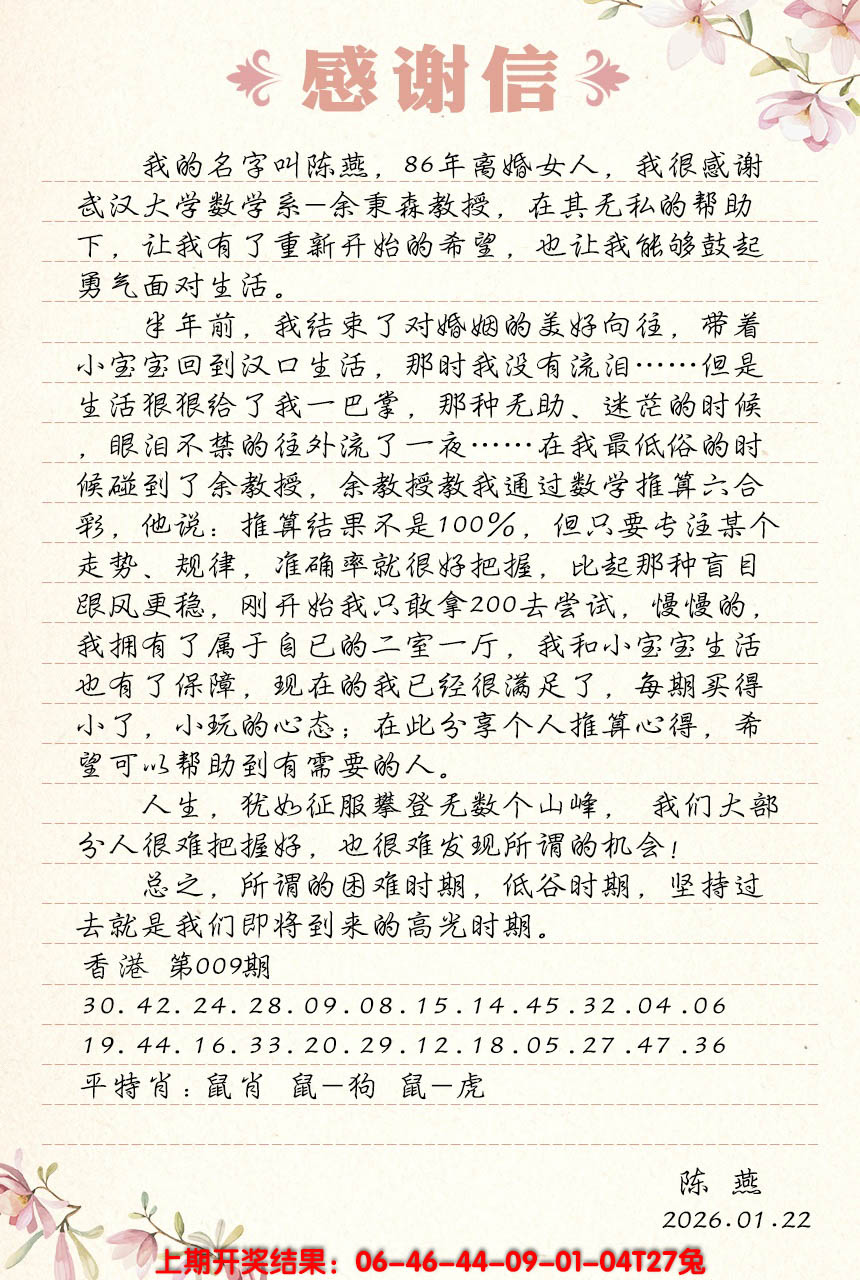 感谢信
我的名字叫陈燕，86年离婚女人，我很感谢
武汉大学数学系—余秉森教授，在其无私的帮助
下，让我有了重新开始的希望，也让我能够鼓起
勇气面对生活。
半年前，我结束了对婚姻的美好向往，带着
小宝宝回到汉口生活，那时我没有流泪……但是
生活狠狠给了我一巴掌，那种无助、迷茫的时候
，眼泪不禁的往外流了一夜……在我最低俗的时
候碰到了余教授，余教授教我通过数学推算六合
彩，他说：推算结果不是100%，但只要专注某个
走势、规律，准确率就很好把握，比起那种盲目
跟风更稳，刚开始我只敢拿200去尝试，慢慢的，
我拥有了属于自已的二室一厅，我和小宝宝生活
也有了保障，现在的我已经很满足了，每期买得
小了，小玩的心态；在此分享个人推算心得，希
望可以帮助到有需要的人。
人生，犹如征服攀登无数个山峰， 我们大部
分人很难把握好，也很难发现所谓的机会！
总之，所谓的困难时期，低谷时期，坚持过
去就是我们即将到来的高光时期。
香港 第009期
30.42.24.28.09.08.15.14.45.32.04.06
19.44.16.33.20.29.12.18.05.27.47.36
平特肖：鼠肖 鼠—狗 鼠—虎
陈 燕
2026.01.22
上期开奖结果：06-46-44-09-01-04T27兔